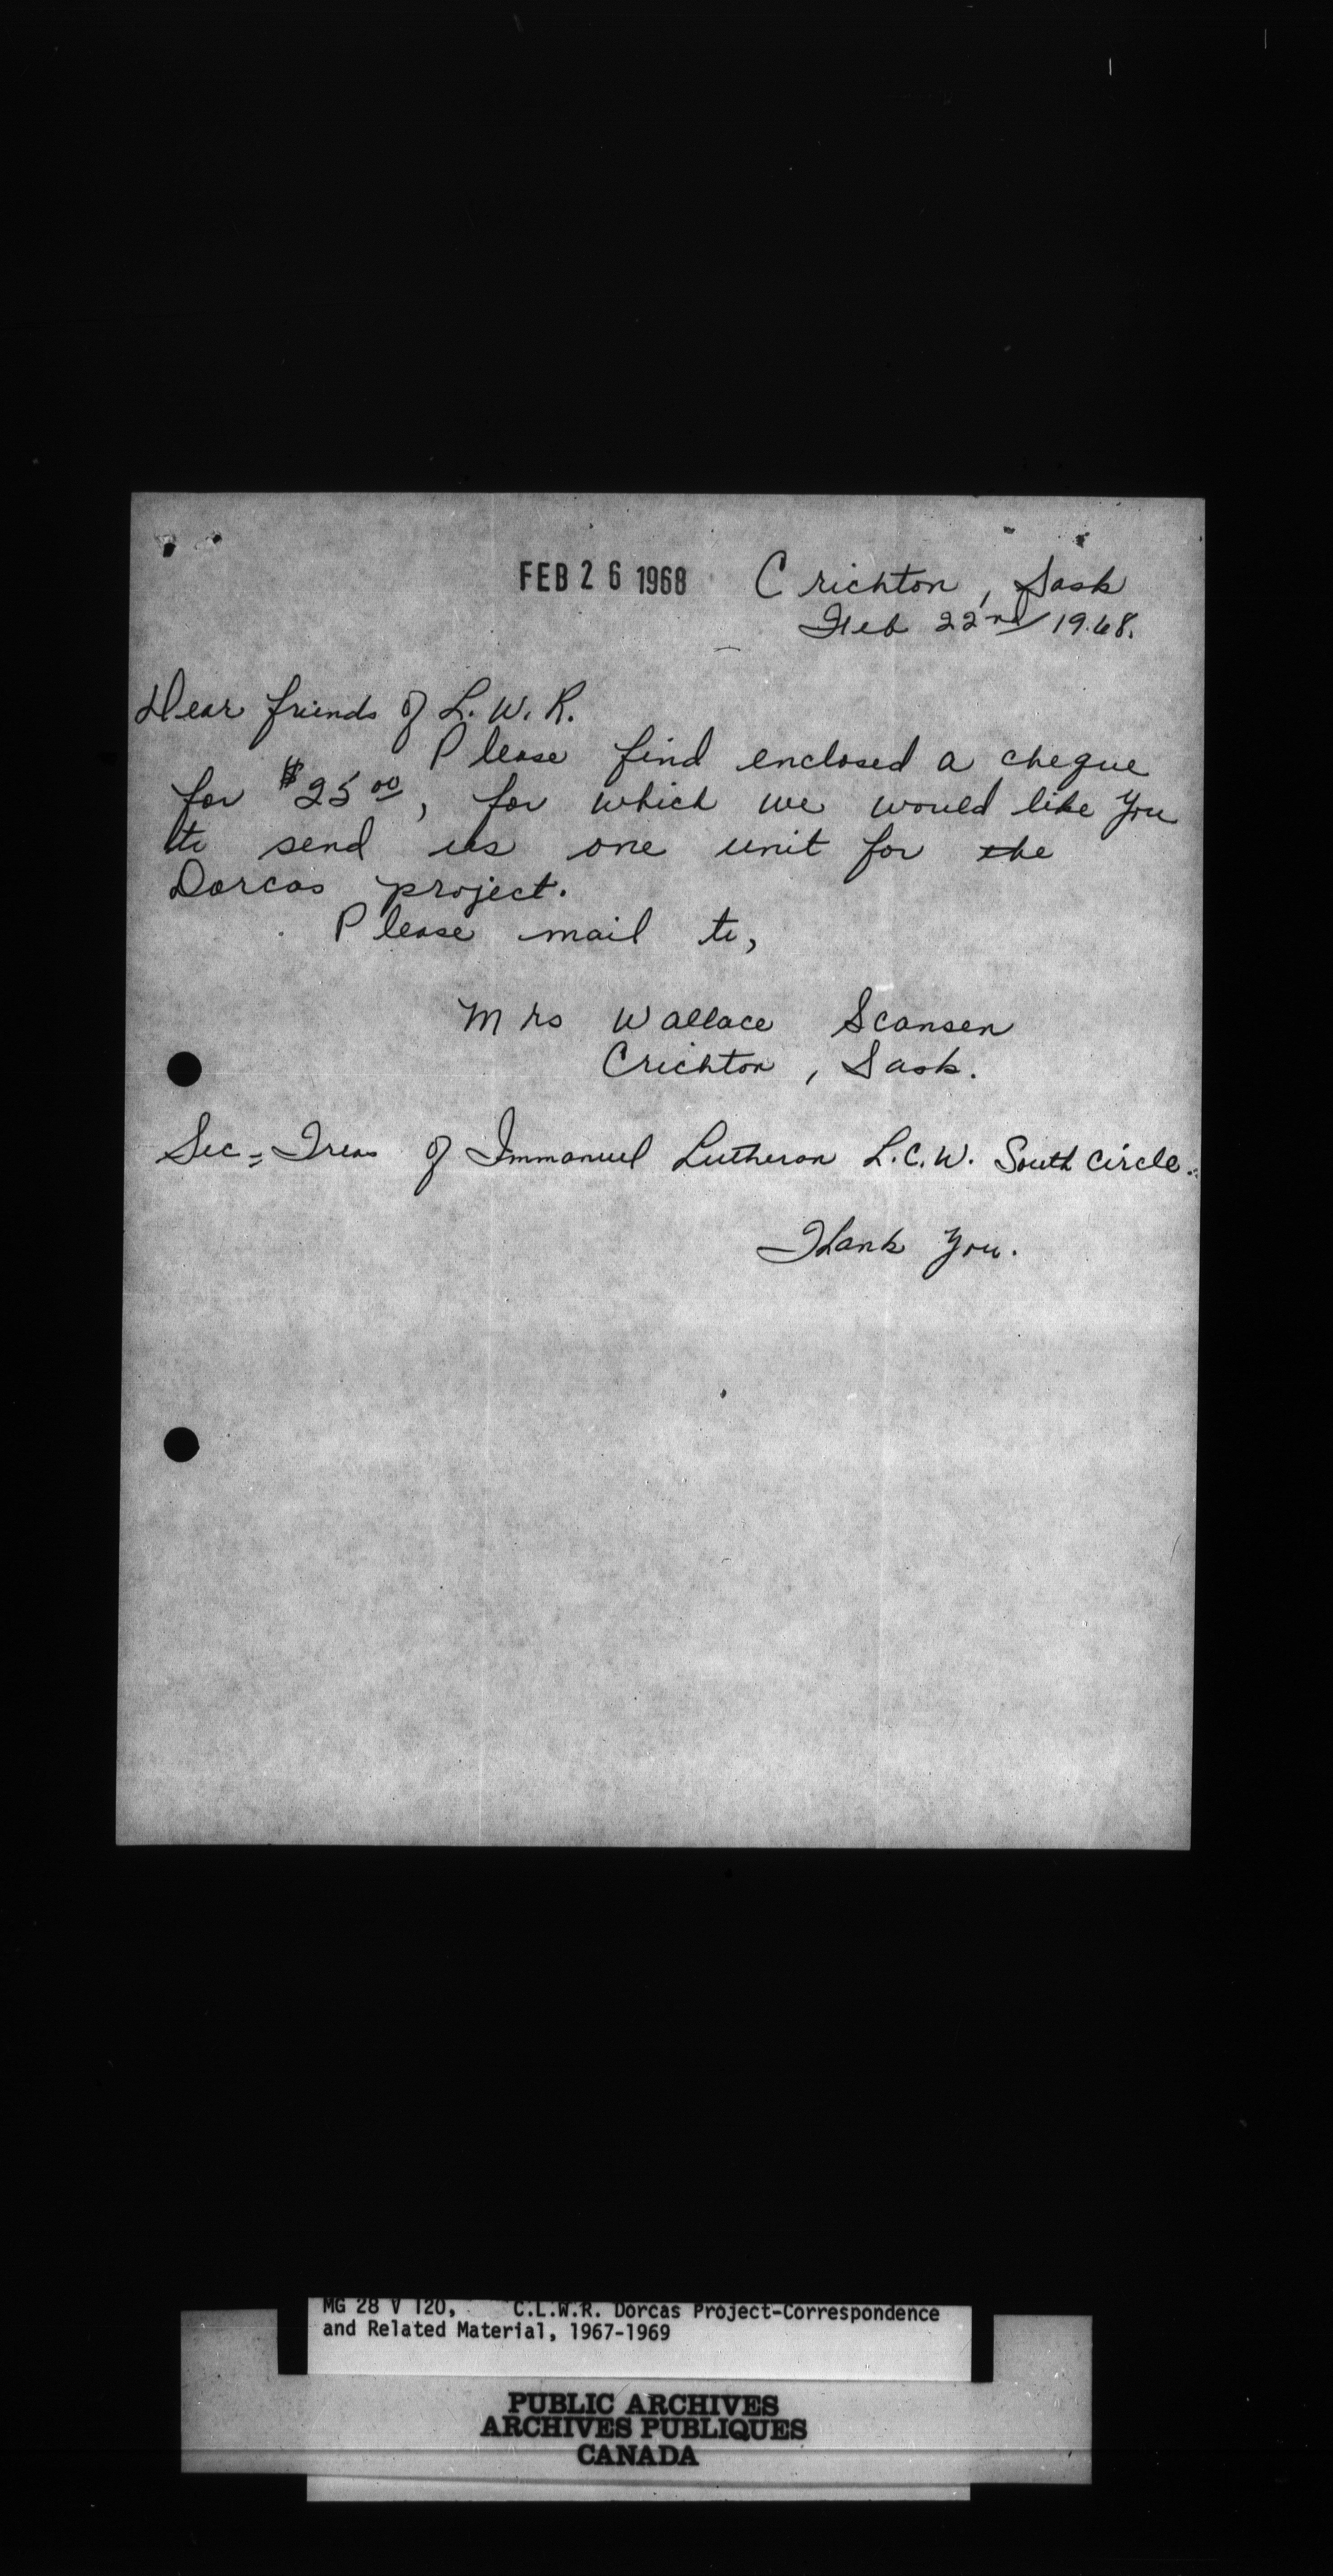 FEB 26 1968 Crichton, Sask
Feb 22nd/1968.
Dear friends of L.W.R.
Please find enclosed a cheque
for $25.00, for which we would like you
to send us one unit for the
Dorcas project.
Please mail to,
Mrs Wallace Scansen
Crichton, Sask.
Sec=Treas of Immanuel Lutheran L.C.W. South Circle.
Thank You.
MG 28 V 120, C.L.W.R. Dorcas Project-Correspondence
and Related Material, 1967-1969
PUBLIC ARCHIVES
ARCHIVES PUBLIQUES
CANADA